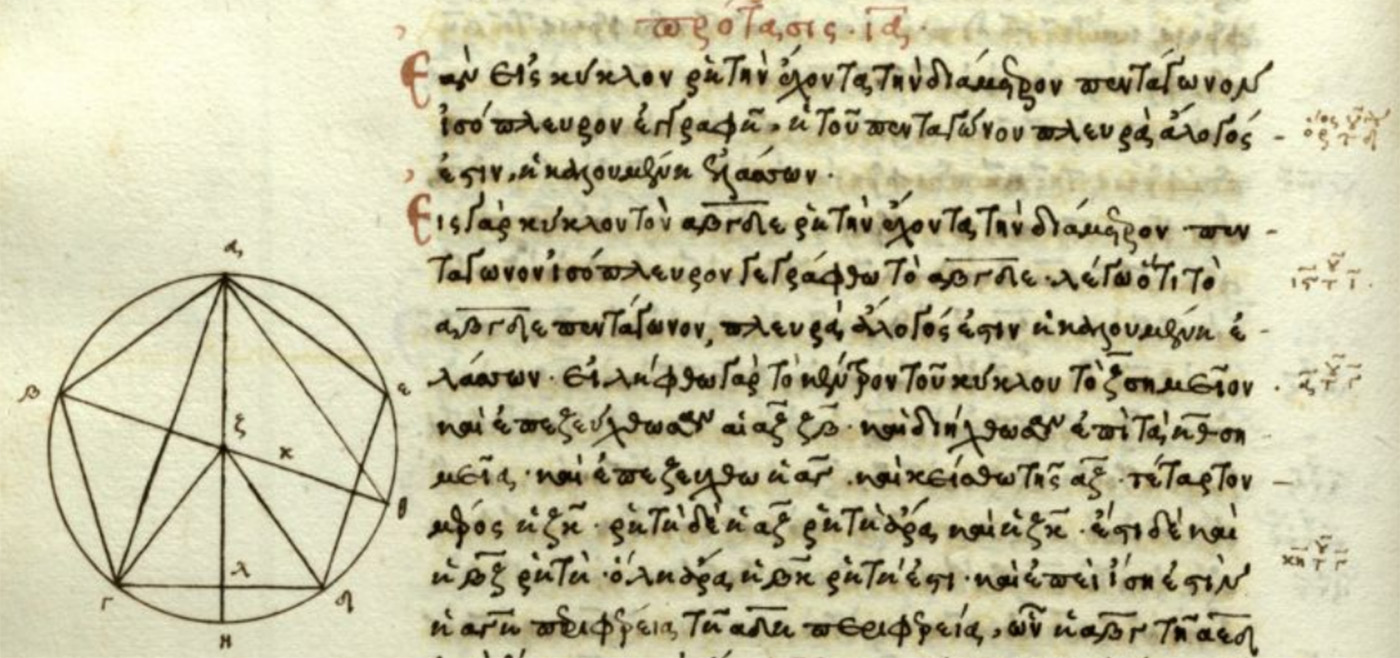 πρότασις ια
Εαν εις κύκλον ρητην έχοντα την διάμετρον πεντάγωνον
ισόπλευρον εγγραφη, η του πενταγώνου πλευρα άλογός
εστιν, η καλουμένη ελάσσων.
Εις γαρ κύκλον τον αβγδε ρητην έχοντα την διάμετρον πεν
τάγωνον ισόπλευρον γεγράφθω το αβγδε. λέγω ότι το
αβγδε πενταγώνον, πλευρα άλογός εστιν η καλουμένη ε
λάσσων. Ειλήφθω γαρ το κέντρον του κύκλου το ζ σημειον
και επεζεύχθωσαν αι αζ ζβ. και διήχθωσαν επι τα η θ ση
μεια. και επεζεύχθω η αγ. και κείσθω της αζ. τέταρτον
μέρος η ζκ. ρητη δε η αζ ρητη άρα και η ζκ. έστι δε και
η βζ ρητη. όλη άρα η βκ ρητή εστι. και επει ίση εστιν
η αγη περιφέρεια τη αδη περιφερεία, ων η αβγ τη αεδ
α
β
ε
ζ
κ
θ
λ
γ
δ
η